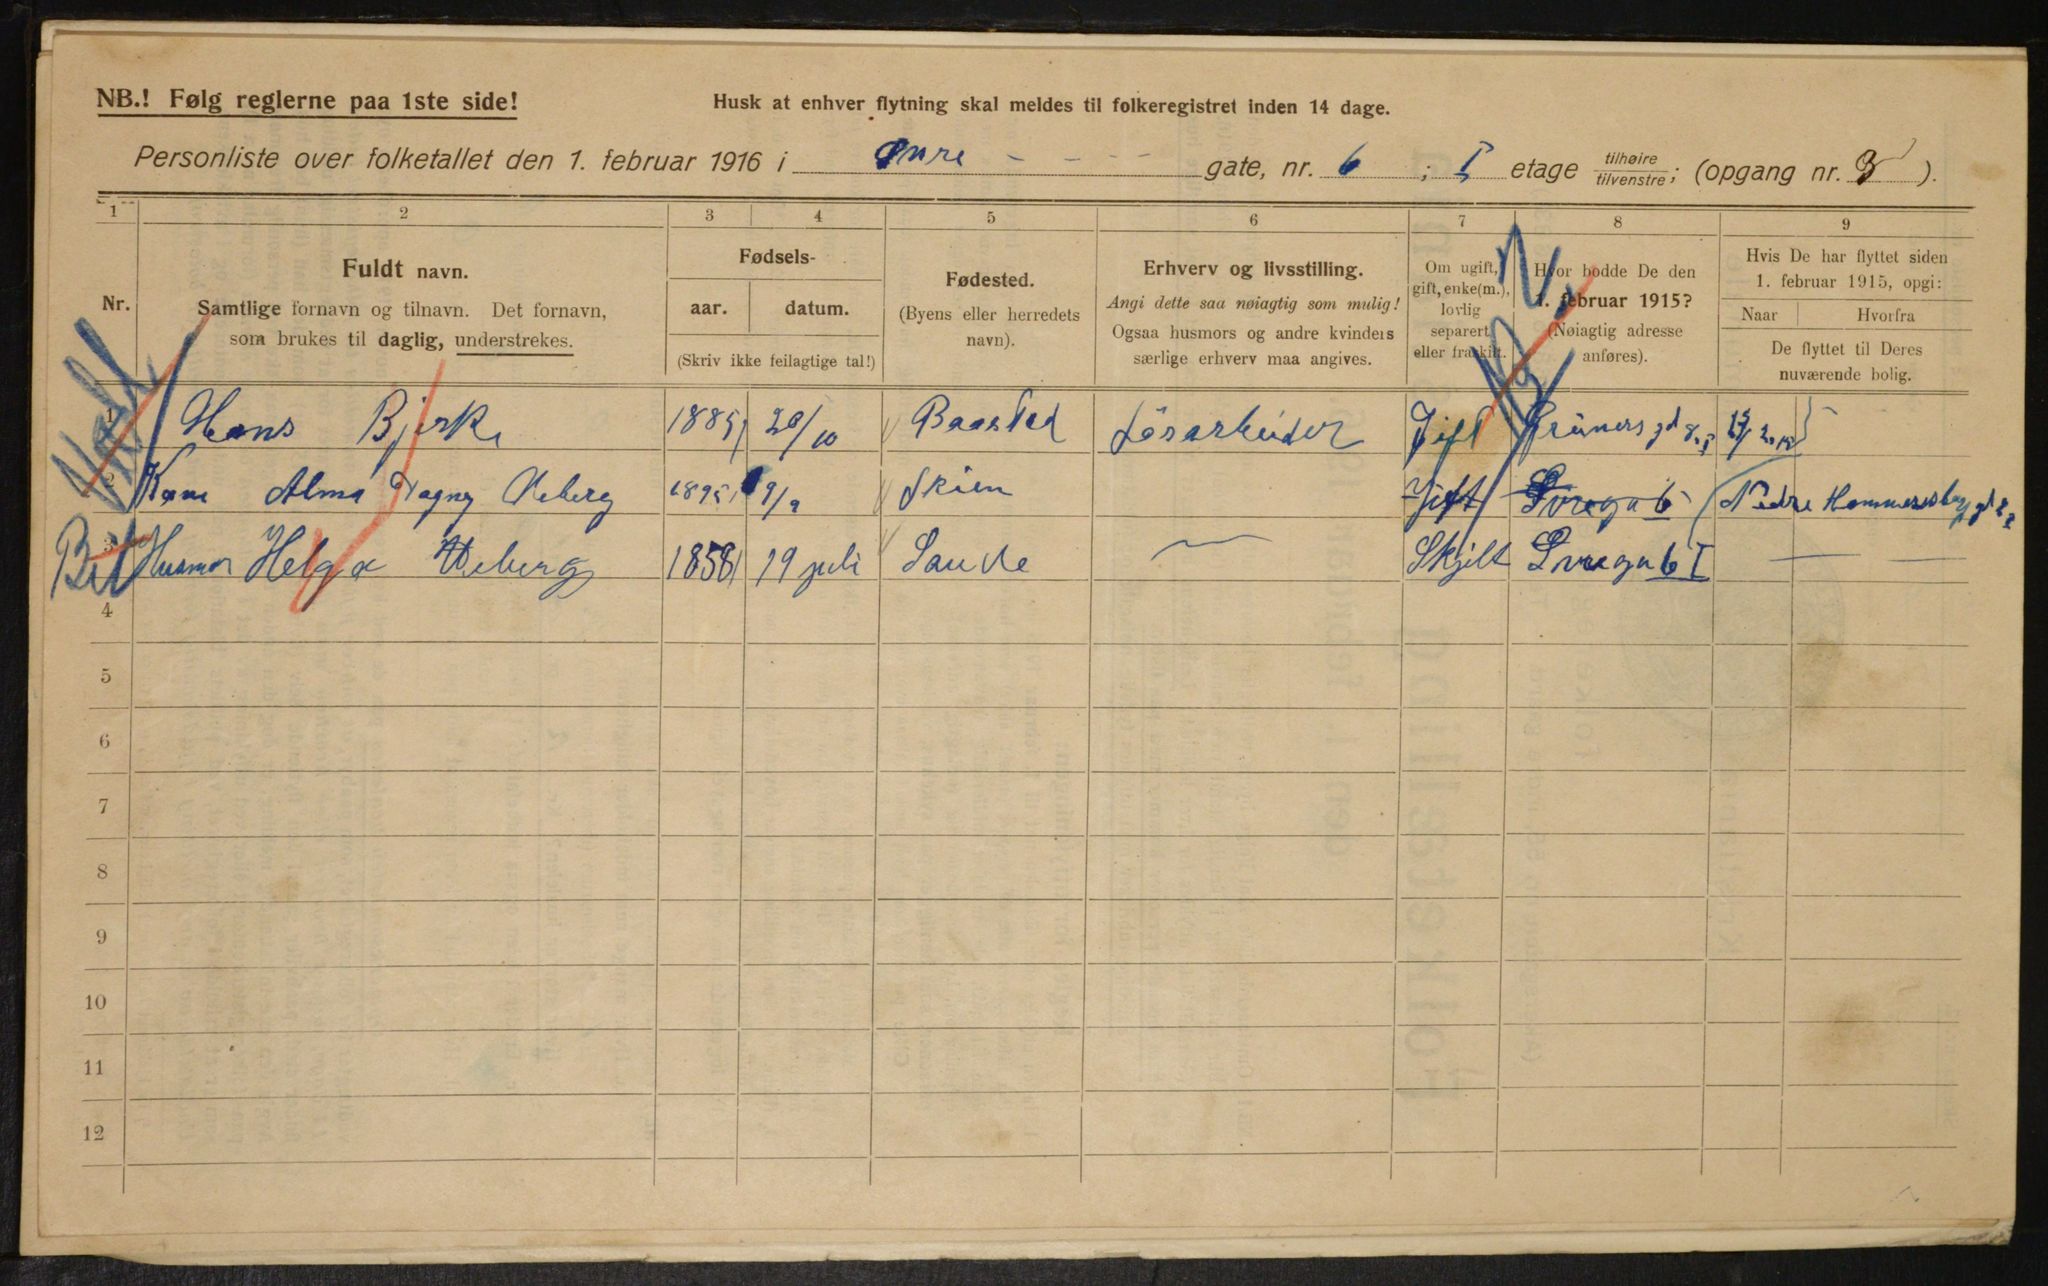 NB.! Følg reglerne paa 1ste side!
Husk at enhver flytning skal meldes til folkeregistret inden 14 dage.
Personliste over folketallet den 1. februar 1916 i gate, nr. 6 ; I etage tilhøire tilvenstre; (opgang nr. ).
1 2 3 4 5 6 7 8 9
Nr.
Fuldt navn.
Samtlige fornavn og tilnavn. Det fornavn,
som brukes til daglig, understrekes.
Fødsels-
aar. datum.
(Skriv ikke feilagtige tal!)
Fødested.
(Byens eller herredets
navn).
Erhverv og livsstilling.
Angi dette saa nøiagtig som mulig!
Ogsaa husmors og andre kvinders
særlige erhverv maa angives.
Om ugift,
gift, enke(m.),
lovlig
separert
eller fraskilt.
Hvor bodde De den
1. februar 1915?
(Nøiagtig adresse
anføres).
Hvis De har flyttet siden
1. februar 1915, opgi:
Naar Hvorfra
De flyttet til Deres
nuværende bolig.
1 Hans Bjerke 1885 20/10 Baastad Løsarbeider Gift Grüners gd 8
2 Kone Alma Dagny 1895 9/9 Skien Gift 6 Nedre Hammersborg gd 22
3 Husmor Helga 1858 19 juli Saude Skjilt 6 I
4
5
6
7
8
9
10
11
12